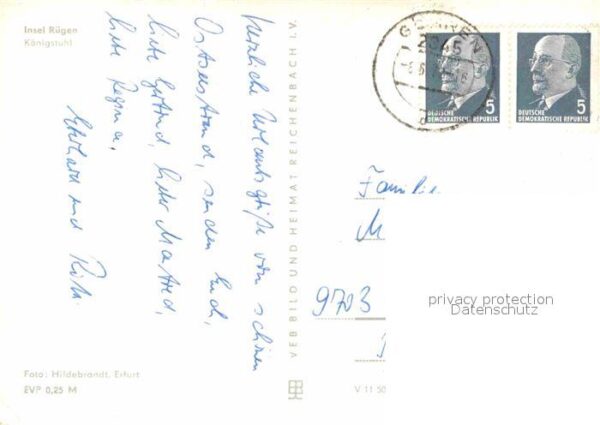 Insel Rügen
Königstuhl
Herzliche Urlaubsgrüße vom schönen
Ostseestrand, senden Euch,
liebe Gertrud, lieber Manfred,
liebe Regina,
Eberhard und Ruth.
Foto: Hildebrandt, Erfurt
EVP 0,25 M
VEB BILD UND HEIMAT REICHENBACH I. V.
V 11 50
GÖHREN
2345
5
DEUTSCHE
DEMOKRATISCHE REPUBLIK
5
DEUTSCHE
DEMOKRATISCHE REPUBLIK
Familie
M
9703
privacy protection
Datenschutz